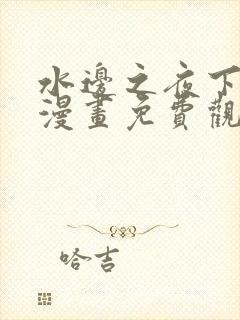 水邊之夜下
漫畫免費觀
哈吉